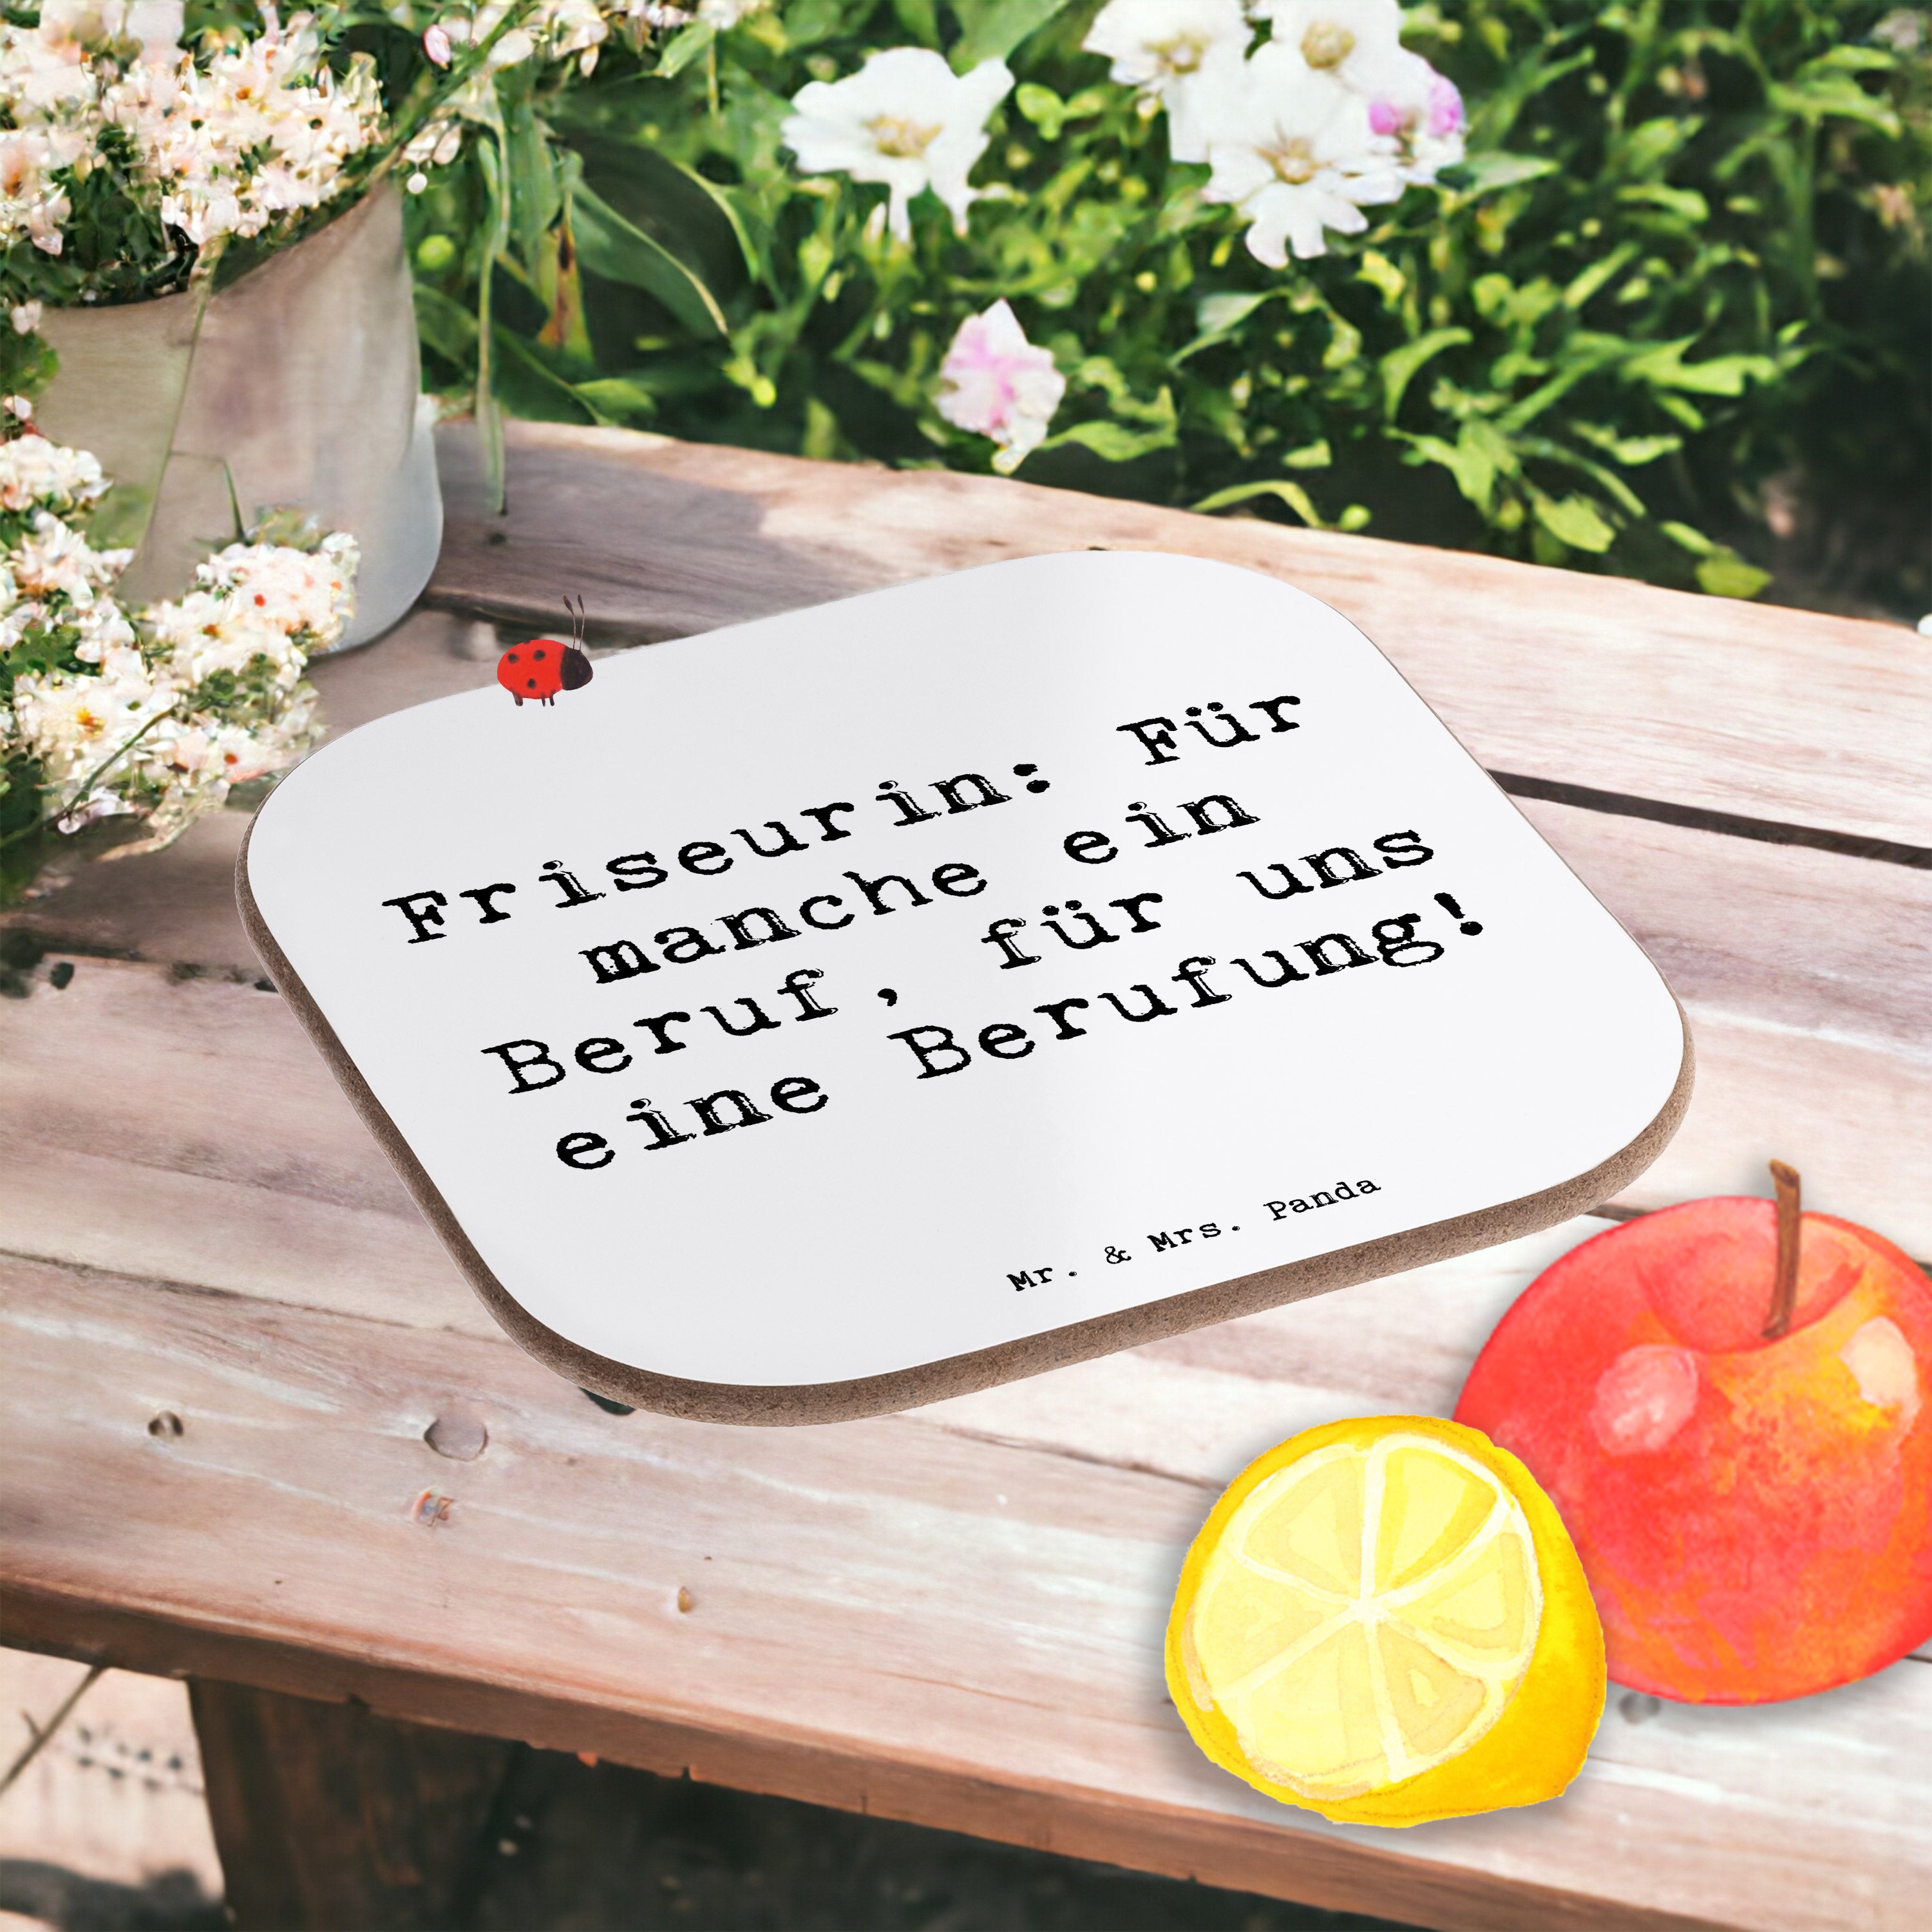 Friseurin: Für
manche ein
Beruf, für uns
eine Berufung!
Mr. & Mrs. Panda